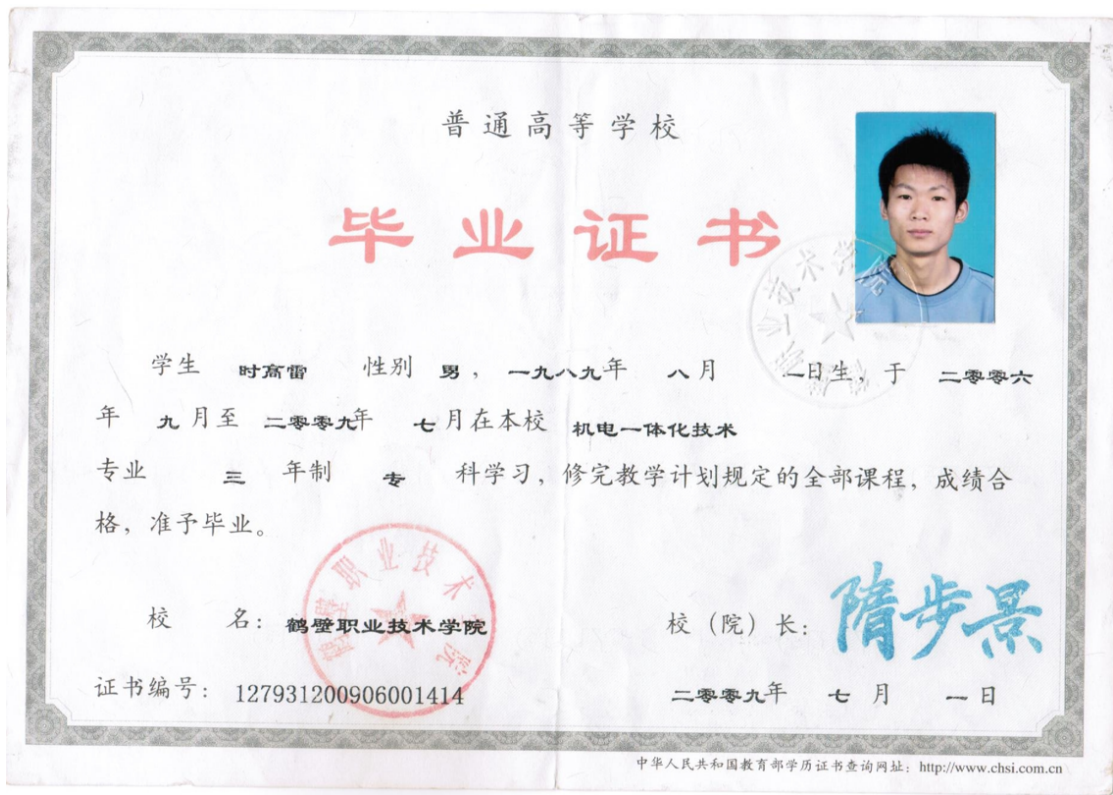 普通高等学校
毕业证书
学生 时高雷 性别 男，一九八九年 八月 一日生，于 二零零六
年 九月至 二零零九年 七月在本校 机电一体化技术
专业 三 年制 专 科学习，修完教学计划规定的全部课程，成绩合
格，准予毕业。
鹤壁职业技术学院
校 名：鹤壁职业技术学院 校（院）长：隋步景
证书编号：127931200906001414 二零零九年 七月 一日
中华人民共和国教育部学历证书查询网址：http://www.chsi.com.cn